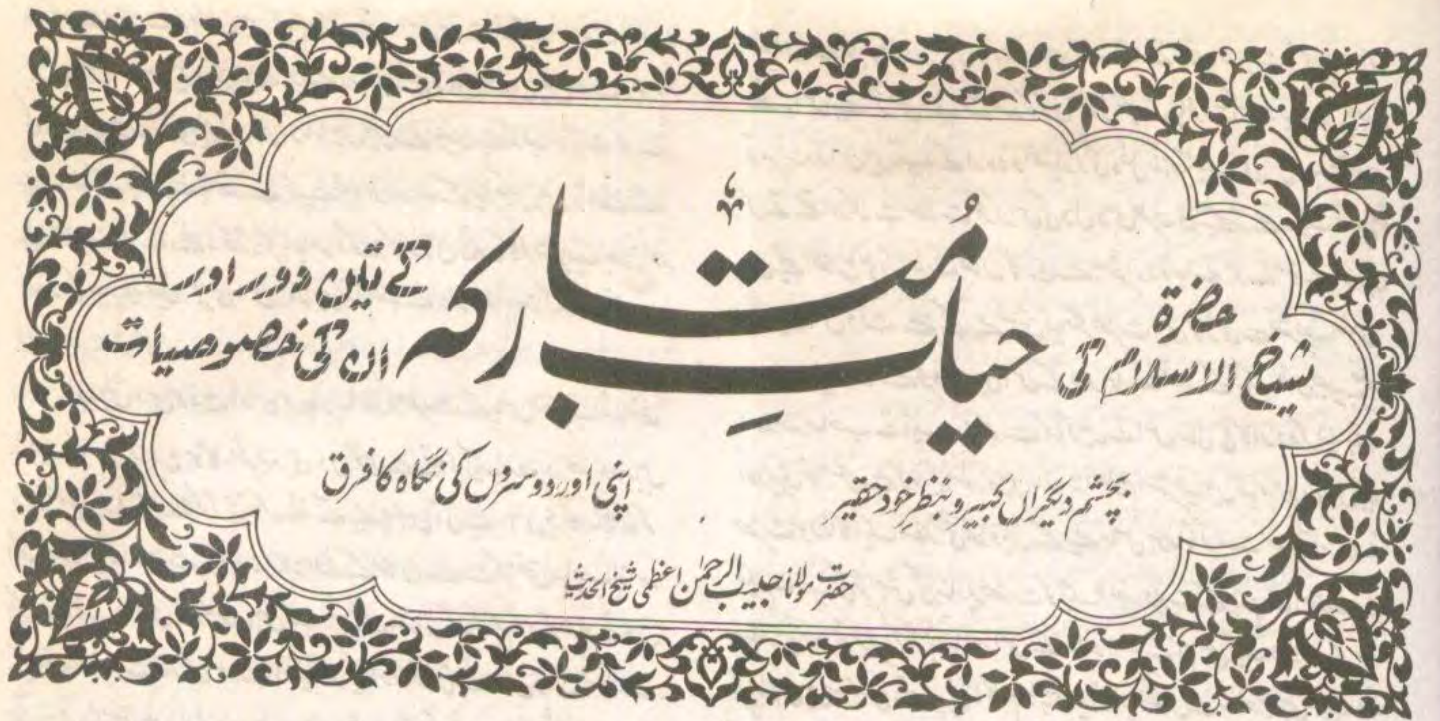 حضرۃ
شیخ الاسلام کی
حیاتِ مُبارکہ
کے تین دور اور
ان کی خصوصیات
بچشم دیگراں کبیر و بنظرِ خود حقیر
اپنی اور دوسروں کی نگاہ کا فرق
حضرت مولانا حبیب الرحمٰن اعظمی شیخ الحدیث